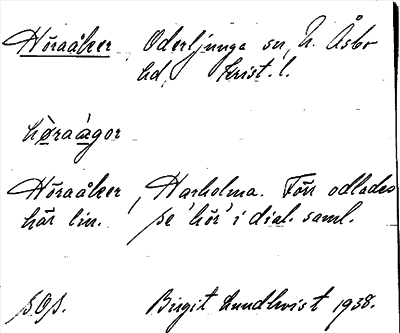 Höraåker, Oderljunga sn, N. Åsbo
hd, Krist. l.
hø̀raágor
Höraåker, Harholma. Förr odlades
här lin. se 'hör' i dial. saml.
sOs. Birgit Lundkvist 1938.